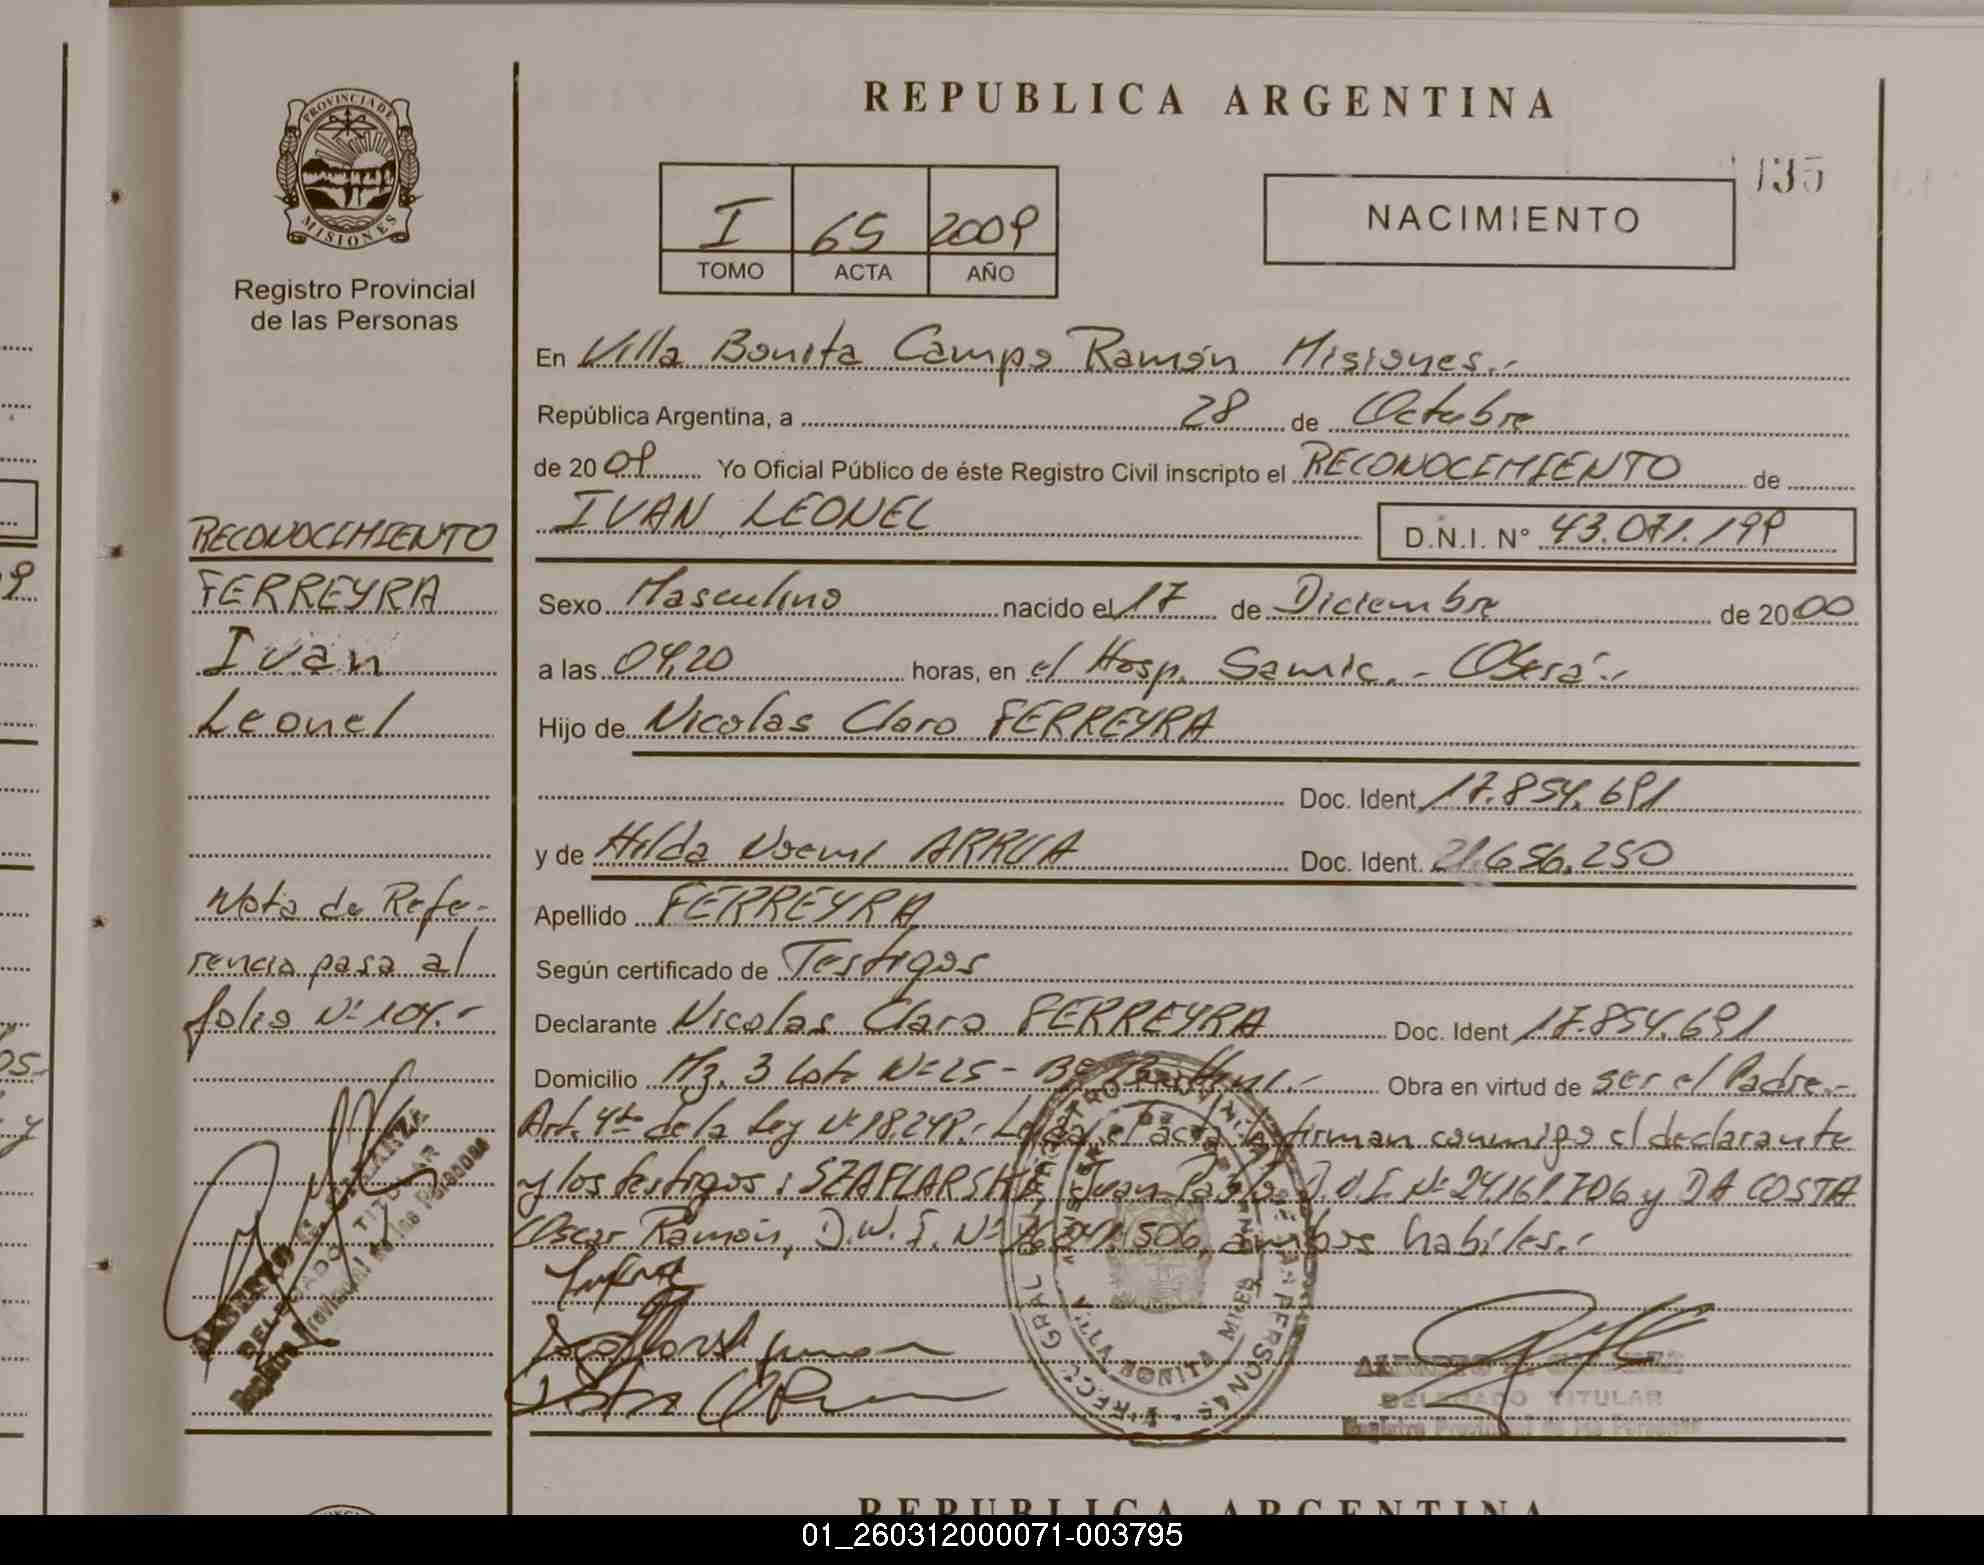 REPUBLICA ARGENTINA
135
PROVINCIA DE MISIONES
Registro Provincial
de las Personas
I 65 2009
TOMO ACTA AÑO
NACIMIENTO
En Villa Bonita Campo Ramón Misiones.-
República Argentina, a 28 de Octubre
de 2009 Yo Oficial Público de éste Registro Civil inscripto el RECONOCIMIENTO de
IVAN LEONEL D.N.I. N° 43.071.199
Sexo Masculino nacido el 17 de Diciembre de 2000
a las 04,20 horas, en el Hosp. Samic.- Oberá.-
Hijo de Nicolas Claro FERREYRA
Doc. Ident 17.854.691
y de Hilda Noemi ARRUA Doc. Ident. 21.656.250
Apellido FERREYRA
Según certificado de Testigos
Declarante Nicolas Claro FERREYRA Doc. Ident 17.854.691
Domicilio Mz. 3 Lote N° 25 - Obra en virtud de ser el Padre.-
Art. 4to de la Ley N° 18.248.- el acta la firman conmigo el declarante
y los testigos: SZAFLARSKI, Juan Pablo D.N.I. N° 24.161.706 y DA COSTA
Oscar Ramón, D.N.I. N° 506, ambos habiles.-
RECONOCIMIENTO
FERREYRA
Ivan
Leonel
Nota de Refe-
rencia pasa al
folio N° 104.-
DELEGADO TITULAR
Registro Provincial de las Personas
VILLA BONITA MNES
DELEGADO TITULAR
Registro Provincial de las Personas
REPUBLICA ARGENTINA
01_260312000071-003795